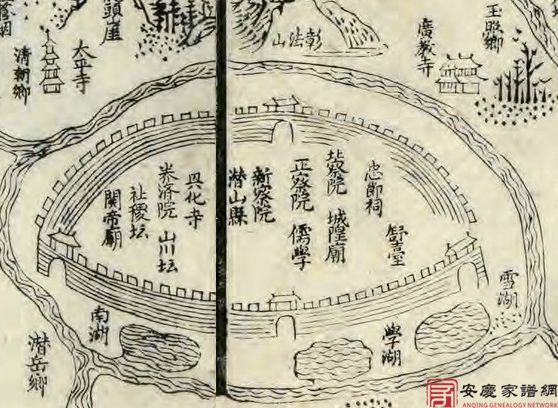 玉照鄉
廣教寺
彰法山
頭崖
太平寺
清朝鄉
忠節祠
舒臺
察院
城隍廟
正察院
儒學
新察院
潛山縣
興化寺
養濟院
山川坛
社稷坛
關帝廟
雪湖
學湖
南湖
潛岳鄉
安慶家譜網
ANQING GENEALOGY NETWORK